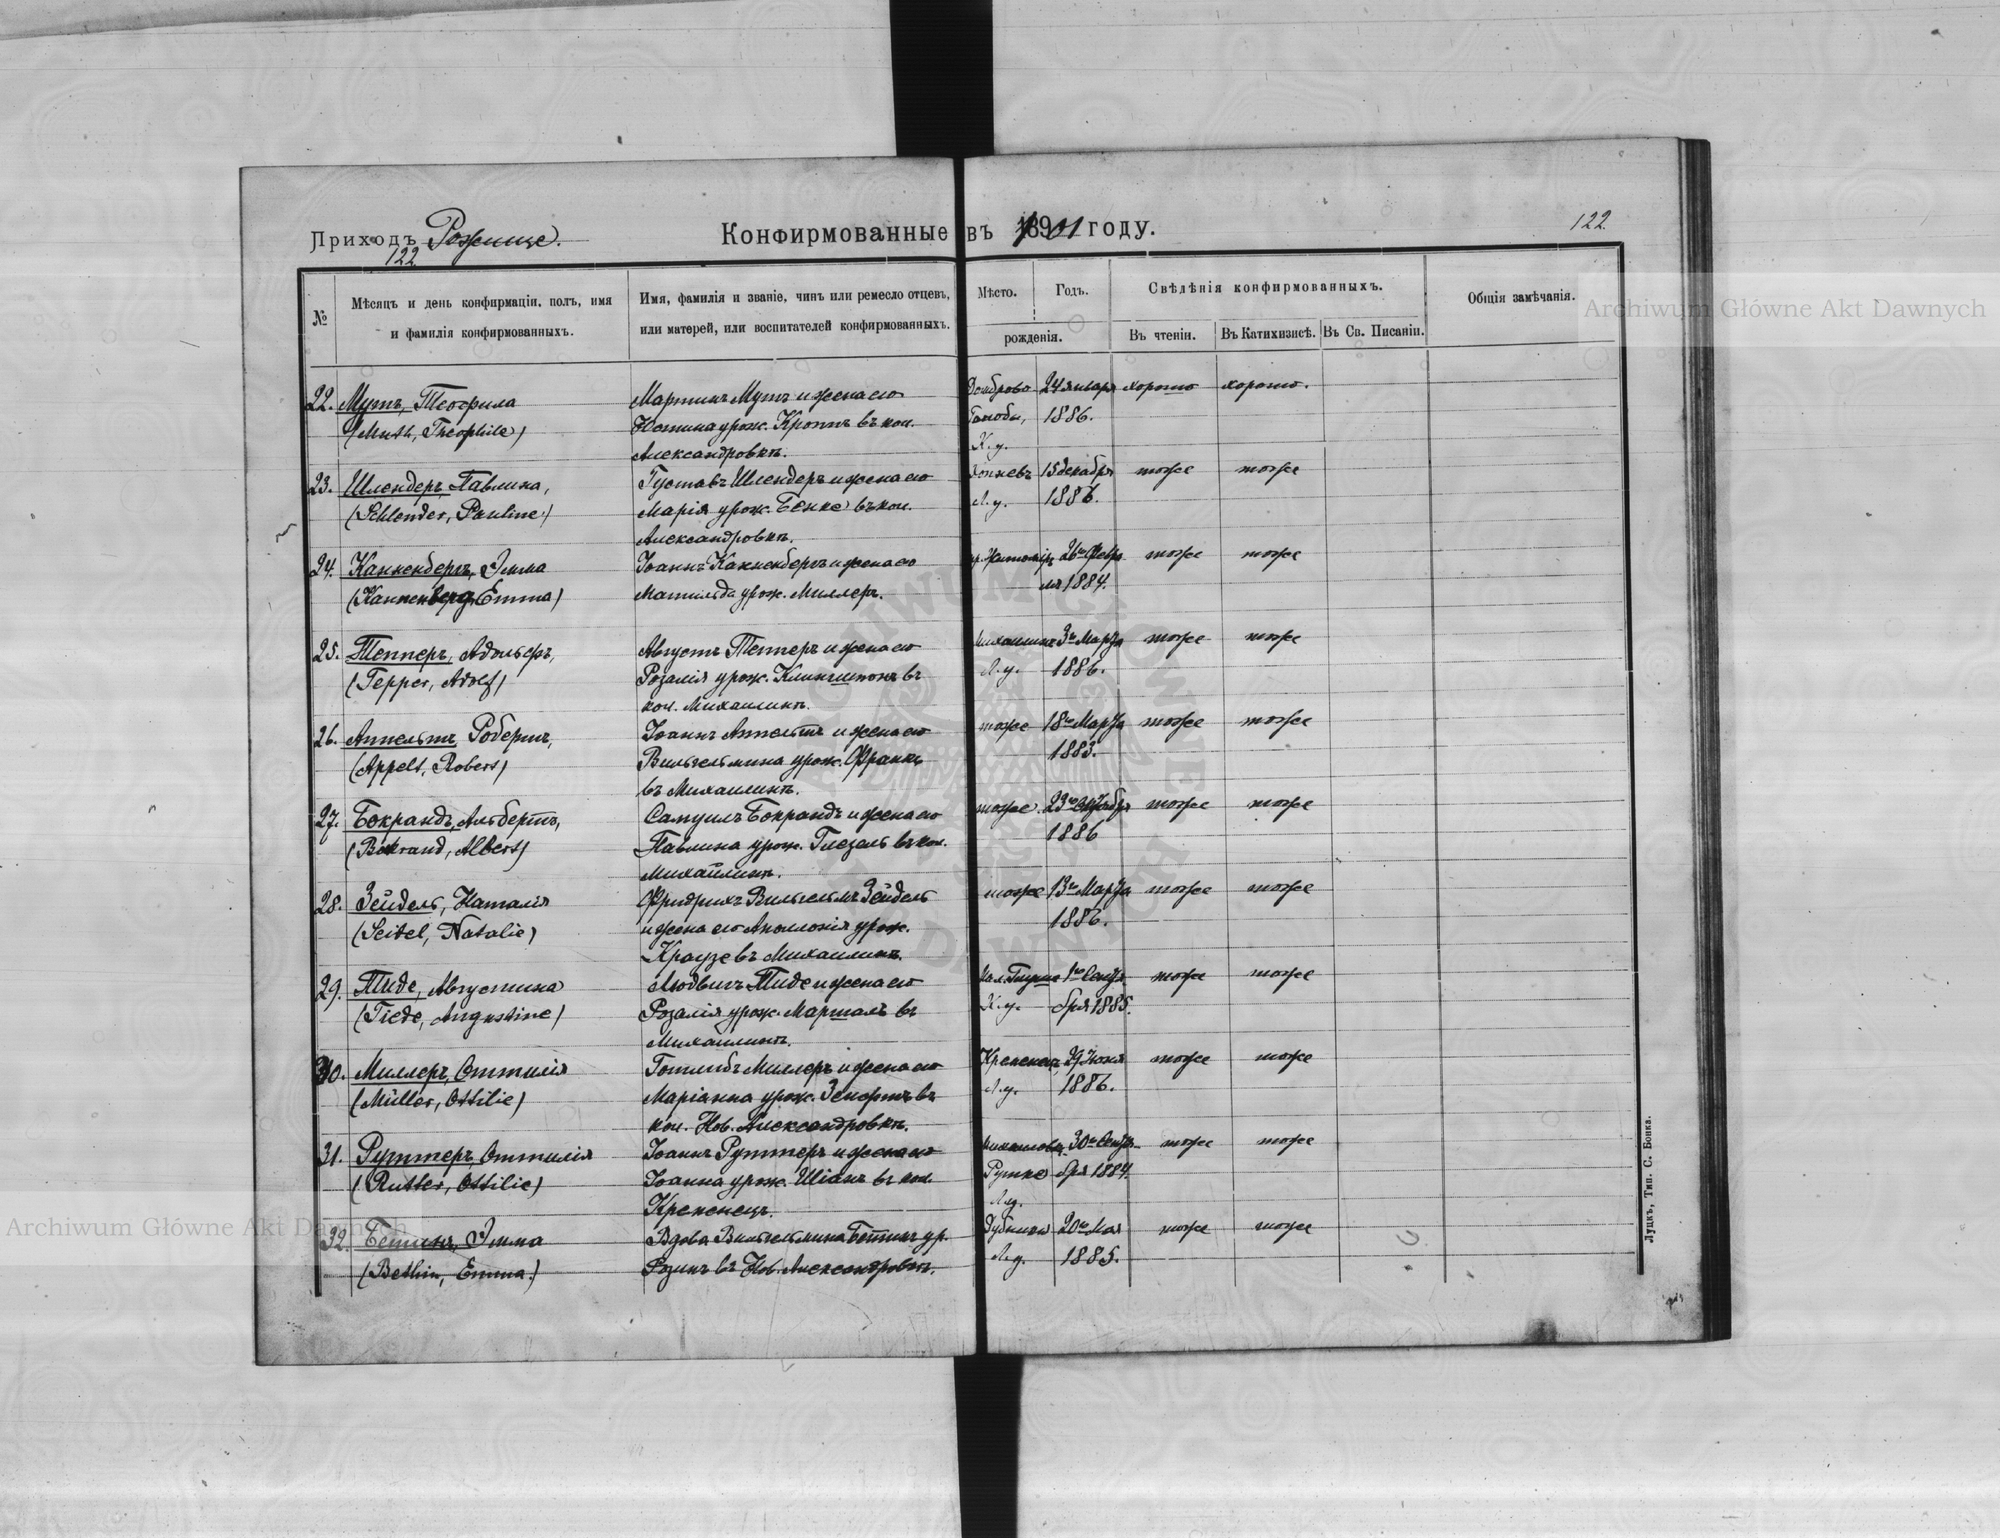 Приходъ Рожище.
122
Конфирмованные въ 1901 году.
122
№
Мѣсяцъ и день конфирмаціи, полъ, имя
и фамилія конфирмованныхъ.
Имя, фамилія и званіе, чинъ или ремесло отцевъ,
или матерей, или воспитателей конфирмованныхъ.
Мѣсто.
Годъ.
рожденія.
Свѣдѣнія конфирмованныхъ.
Въ чтеніи.
Въ Катихизисѣ.
Въ Св. Писаніи.
Общія замѣчанія.
22. Мутъ, Теофила
(Muth, Theophile)
Мартинъ Мутъ и жена его
Юстина урож. Кроппъ въ кол.
Александровкѣ.
Домброво
К.у.
24 января
1886.
хорошо
хорошо.
23. Шлендеръ Павлина,
(Schlender, Pauline)
Густавъ Шлендеръ и жена его
Марія урож. Бенке въ кол.
Александровкѣ.
Л.у.
15 декабря
1886.
тоже
тоже
24. Канненбергъ, Эмма
(Kannenberg, Emma)
Іоаннъ Канненбергъ и жена его
Матильда урож. Миллеръ.
г. Житоміръ
26го Февра
ля 1884.
тоже
тоже
25. Тепперъ, Адольфъ,
(Tepper, Adolf)
Августъ Тепперъ и жена его
Розалія урож. Клингшпонъ въ
кол. Михаилинѣ.
Михаилинъ
Л.у.
3го Марта
1886.
тоже
тоже
26. Аппельтъ Робертъ,
(Appelt, Robert)
Іоаннъ Аппельтъ и жена его
Вильгельмина урож. Франкъ
въ Михаилинѣ.
тоже
18го Марта
1883.
тоже
тоже
27. Бокрандъ, Альбертъ,
(Bokrand, Albert)
Самуилъ Бокрандъ и жена его
Павлина урож. Глезель въ кол.
Михайлинѣ.
тоже.
23го Октября
1886
тоже
тоже
28. Зейдель, Наталія
(Seidel, Natalie)
Фридрихъ Вильгельмъ Зейдель
и жена его Аполлонія урож.
Краузе въ Михаилинѣ.
тоже
13го Марта
1886.
тоже
тоже
29. Тиде, Августина
(Tiede, Augustine)
Людвигъ Тиде и жена его
Розалія урож. Маршалъ въ
Михаилинѣ.
К.у.
1го Сентя
бря 1885.
тоже
тоже
30. Миллеръ, Оттилія
(Müller, Ottilie)
Готлибъ Миллеръ и жена его
Маріанна урож. Зенфтъ въ
кол. Нов. Александровкѣ.
Кременецъ
Л.у.
29 Іюня
1886.
тоже
тоже
31. Руттеръ, Оттилія
(Rutter, Ottilie)
Іоаннъ Руттеръ и жена его
Іоанна урож. Шіанъ въ кол.
Кременецъ.
Л.у.
30го Сентя-
бря 1884.
тоже
тоже
32. Бетинъ, Эмма
(Bethin, Emma.)
Вдова Вильгельмина Бетинъ ур.
Розинъ въ Нов. Александровкѣ.
Дубники
Л.у.
20го Мая
1885.
тоже
тоже
Луцкъ, Тип. С. Бонка.
Archiwum Główne Akt Dawnych
Archiwum Główne Akt Dawnych